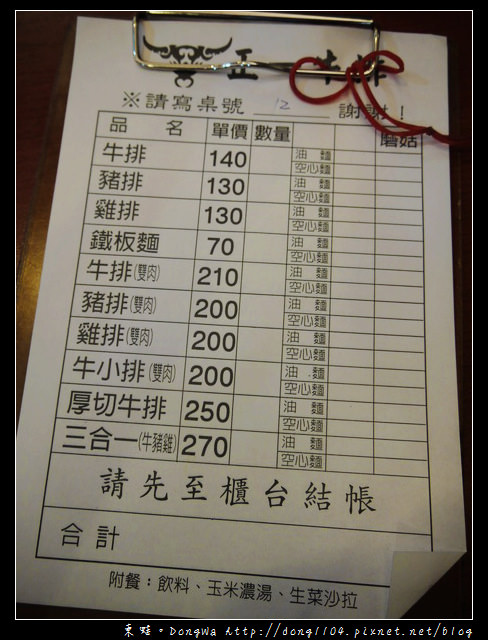 正一牛排
※請寫桌號 12 謝謝！
品名 單價 數量 磨菇
牛排 140 油麵 空心麵
豬排 130 油麵 空心麵
雞排 130 油麵 空心麵
鐵板麵 70 油麵 空心麵
牛排(雙肉) 210 油麵 空心麵
豬排(雙肉) 200 油麵 空心麵
雞排(雙肉) 200 油麵 空心麵
牛小排(雙肉) 200 油麵 空心麵
厚切牛排 250 油麵 空心麵
三合一(牛豬雞) 270 油麵 空心麵
請先至櫃台結帳
合計
附餐：飲料、玉米濃湯、生菜沙拉
東蛙。Dongwa http://dong1104.pixnet.net/blog